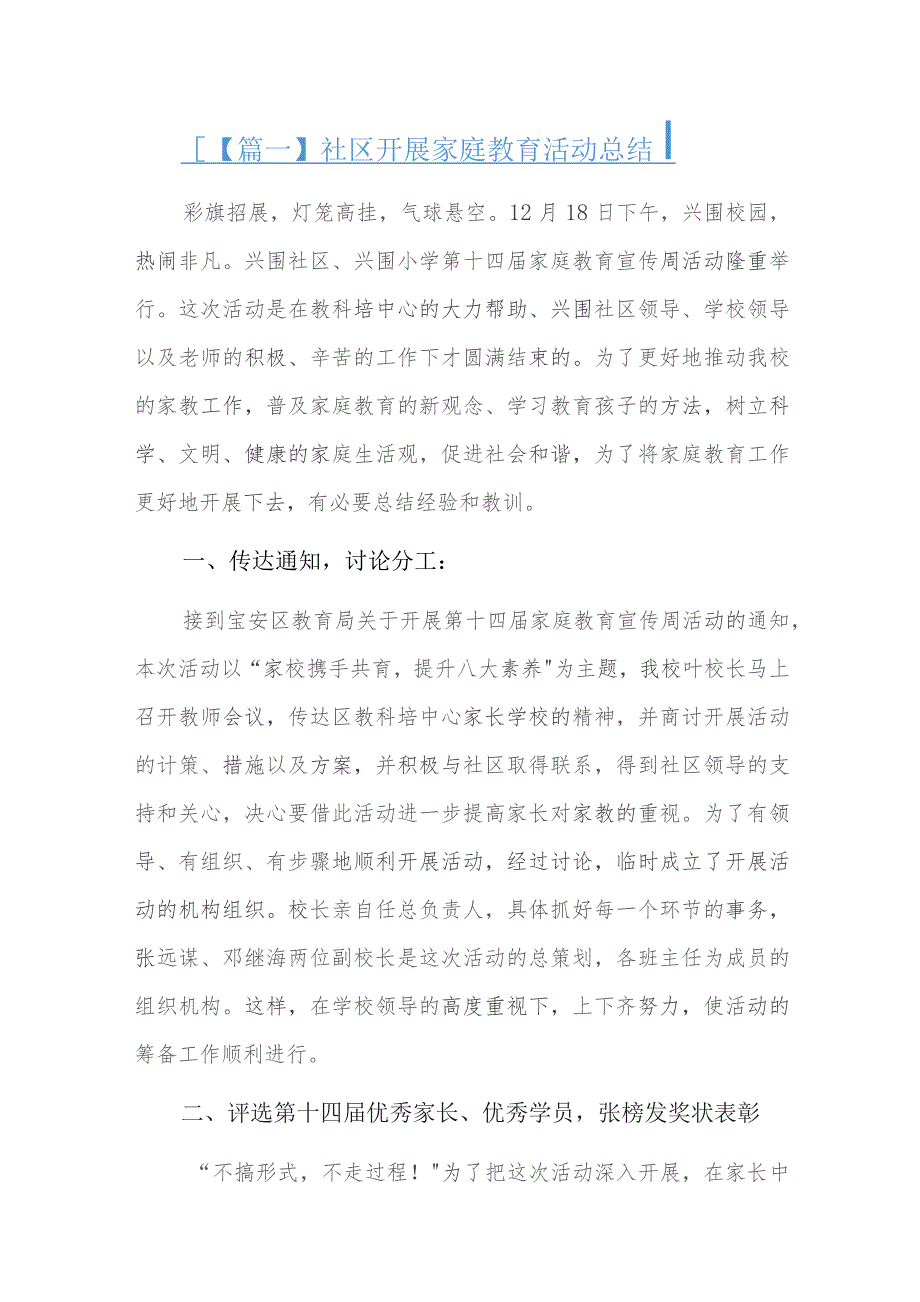 [【篇一】社区开展家庭教育活动总结
彩旗招展，灯笼高挂，气球悬空。12月18日下午，兴围校园，
热闹非凡。兴围社区、兴围小学第十四届家庭教育宣传周活动隆重举
行。这次活动是在教科培中心的大力帮助、兴围社区领导、学校领导
以及老师的积极、辛苦的工作下才圆满结束的。为了更好地推动我校
的家教工作，普及家庭教育的新观念、学习教育孩子的方法，树立科
学、文明、健康的家庭生活观，促进社会和谐，为了将家庭教育工作
更好地开展下去，有必要总结经验和教训。
一、传达通知，讨论分工：
接到宝安区教育局关于开展第十四届家庭教育宣传周活动的通知，
本次活动以“家校携手共育，提升八大素养"为主题，我校叶校长马上
召开教师会议，传达区教科培中心家长学校的精神，并商讨开展活动
的计策、措施以及方案，并积极与社区取得联系，得到社区领导的支
持和关心，决心要借此活动进一步提高家长对家教的重视。为了有领
导、有组织、有步骤地顺利开展活动，经过讨论，临时成立了开展活
动的机构组织。校长亲自任总负责人，具体抓好每一个环节的事务，
张远谋、邓继海两位副校长是这次活动的总策划，各班主任为成员的
组织机构。这样，在学校领导的高度重视下，上下齐努力，使活动的
筹备工作顺利进行。
二、评选第十四届优秀家长、优秀学员，张榜发奖状表彰
“不搞形式，不走过程！"为了把这次活动深入开展，在家长中